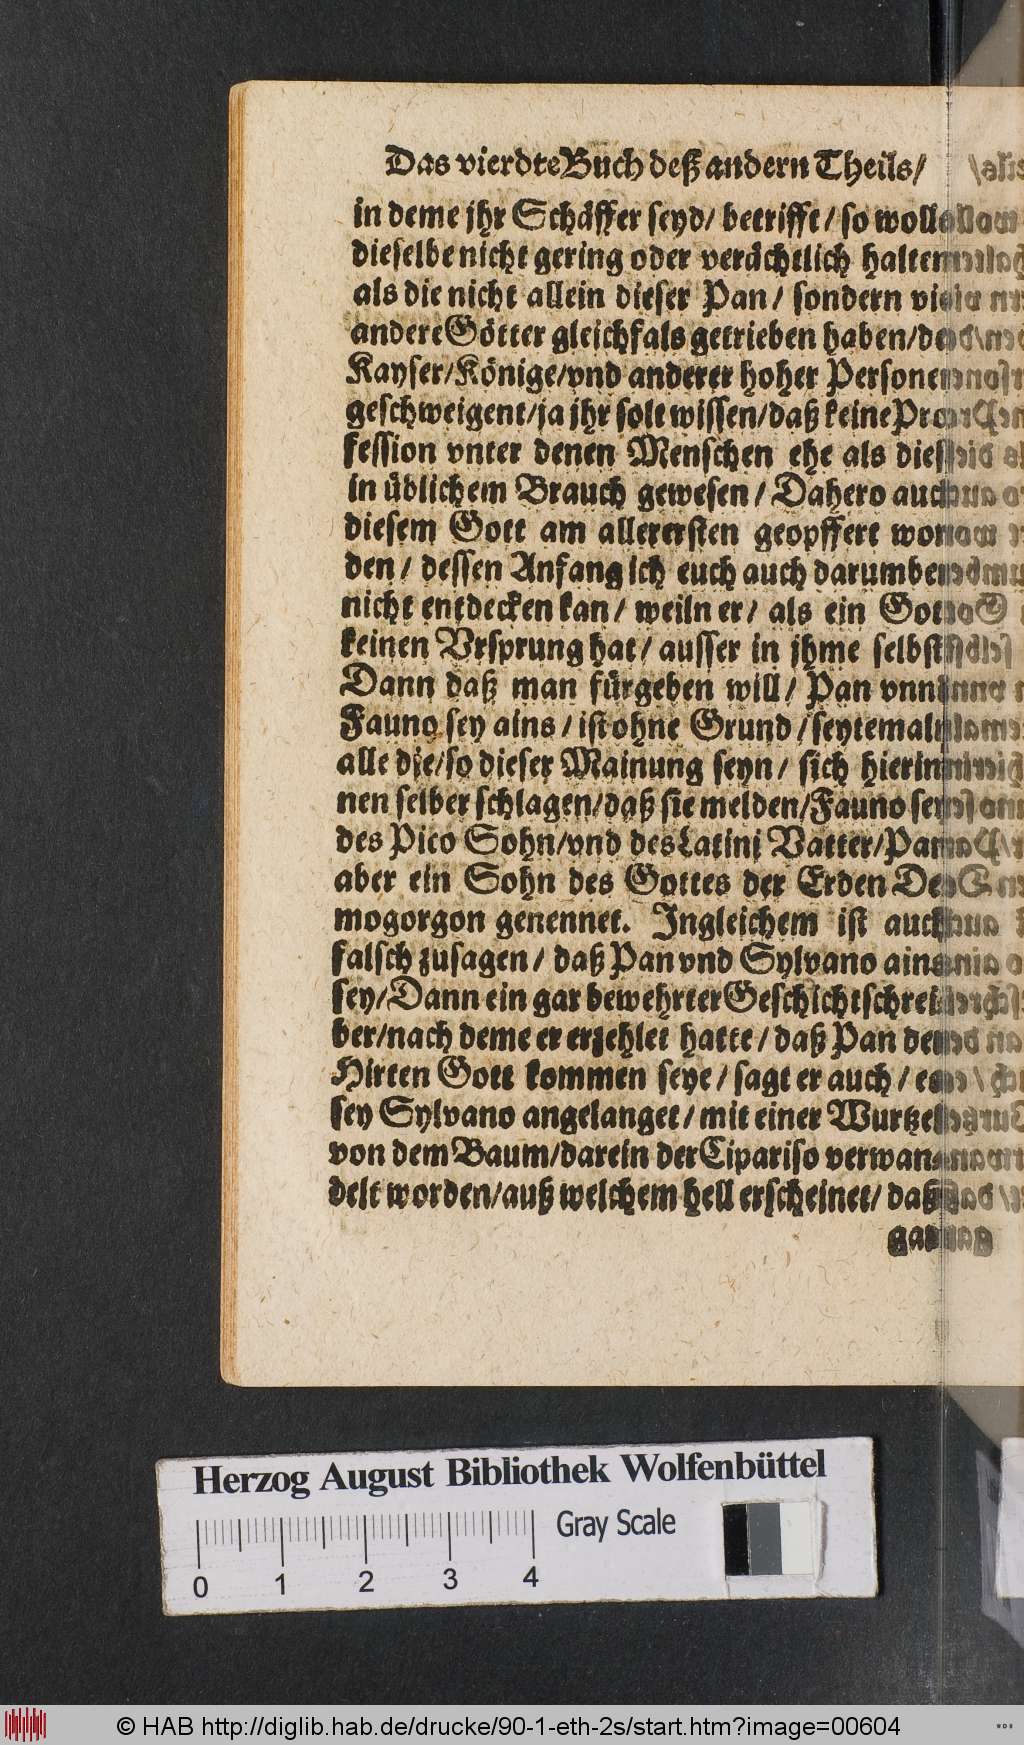 Das vierdte Buch deß andern Theils/
in deme jhr Schäffer seyd/ betrifft/ so woll
dieselbe nicht gering oder verächtlich halten
als die nicht allein dieser Pan/ sondern viel
andere Götter gleichfals getrieben haben/ der
Kayser/ Könige/ vnd anderer hoher Personen
geschweigent/ ja jhr solt wissen/ daß keine Pro-
fession vnter denen Menschen ehe als dies
in üblichem Brauch gewesen/ Dahero auch
diesem Gott am allerersten geopffert wor-
den/ dessen Anfang ich euch auch darumben
nicht entdecken kan/ weiln er/ als ein Gott
keinen Vrsprung hat/ ausser in jhme selbst
Dann daß man fürgeben will/ Pan vnnd
Fauno sey ains/ ist ohne Grund/ seytemaln
alle die/ so dieser Mainung seyn/ sich hierin-
nen selber schlagen/ daß sie melden/ Fauno sey
des Pico Sohn/ vnd des Latini Vatter/ Pan
aber ein Sohn des Gottes der Erden De-
mogorgon genennet. Ingleichem ist auch
falsch zusagen/ daß Pan vnd Sylvano ains
sey/ Dann ein gar bewehrter Geschichtschrei-
ber/ nach deme er erzehlet hatte/ daß Pan der
Hirten Gott kommen seye/ sagt er auch/ es
sey Sylvano angelanget/ mit einer Wurtzel
von dem Baum/ darein der Cipariso verwan-
delt worden/ auß welchem hell erscheinet/ daß
Herzog August Bibliothek Wolfenbüttel
Gray Scale
0 1 2 3 4
© HAB http://diglib.hab.de/drucke/90-1-eth-2s/start.htm?image=00604